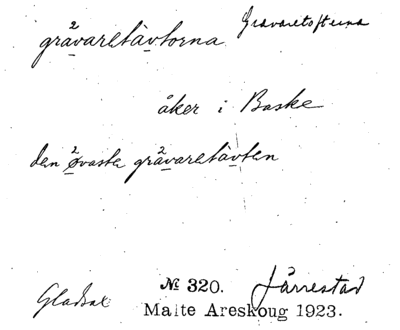 gråvaretåvtorna Gravaretofterna
åker i Baske
den øvasta gråvaretåvten
Gladsax № 320. Järrestad
Malte Areskoug 1923.